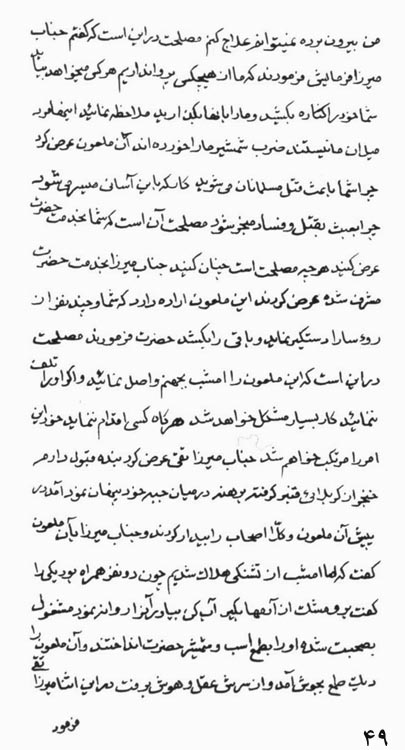 من بیرون برده نمیتوانم علاج کنم مصلحت در این است که گفتم جناب
میرزا فرمایش فرمودند که ما از هیچکس پروا نداریم هر کس میخواهد بیاید
شما خود را کناره بکشید و ما را بآنها بکن ارید ملاحظه نمائید اینها مرد
میدان ما نیستند ضرب شمشیر ما را خورده اند آن ملعون عرض کرد
چرا شما باعث قتل مسلمانان می شوید کار که باین آسانی میسر می شود
چرا بعبث بقتل و فساد منجر شود مصلحت آن است که شما بخدمت حضرت
عرض کنید هرچه مصلحت است چنان کنید جناب میرزا بخدمت حضرت
مشرف شده عرض کردند این ملعون اراده دارد که شما و چند نفر از
رؤسا را دستگیر نماید و باقی را بکشد حضرت فرمودند مصلحت
در این است که این ملعون را امشب بجهنم واصل نمائید و اگر او را تلف
ننمائید کار بسیار مشکل خواهد شد هرگاه کسی اقدام ننماید خود این
امر را مرتکب خواهم شد جناب میرزا تقی عرض کرد بنده قبول دارم
خنجر از کربلائی قنبر گرفته برهنه در میان جبه خود پنهان نمود آمد در
پیش آن ملعون و کل اصحاب را بیدار کردند و جناب میرزا بآن ملعون
گفت که ما امشب از تشنگی هلاک شدیم چون دو نفر همراه بود یکی را
گفت برو مشک از آنها بگیر آب کن بیاور آنرا روانه نمود مشغول
بصحبت شده او را بطمع اسب و شمشیر حضرت انداختند و آن ملعون را
دیگ طمع بجوش آمد و از سرش عقل و هوش برفت در این اثنا میرزا تقی
فرمود
۴۹